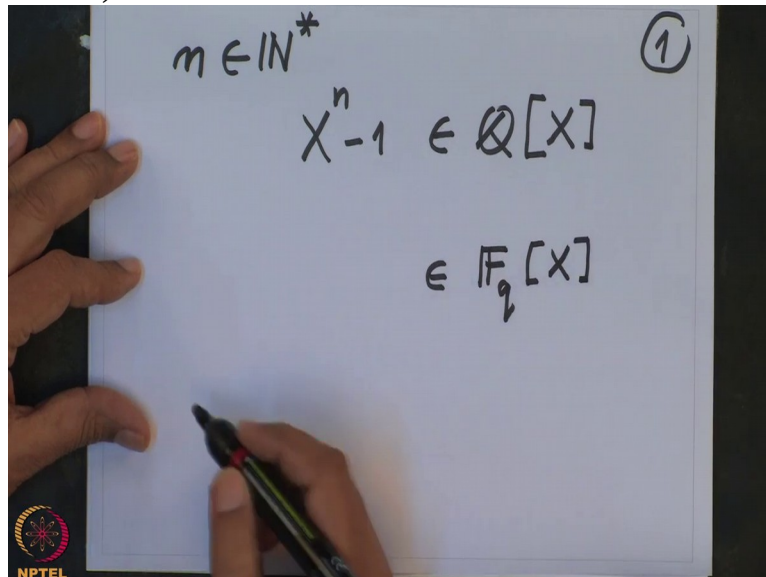 n ∈ ℕ* ①
Xⁿ - 1 ∈ ℚ[X]
∈ 𝔽_q [X]
NPTEL